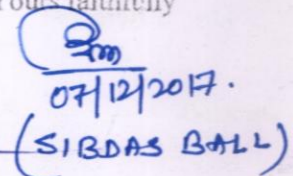 Yours faithfully
07/12/2017.
(SIBDAS BALL)